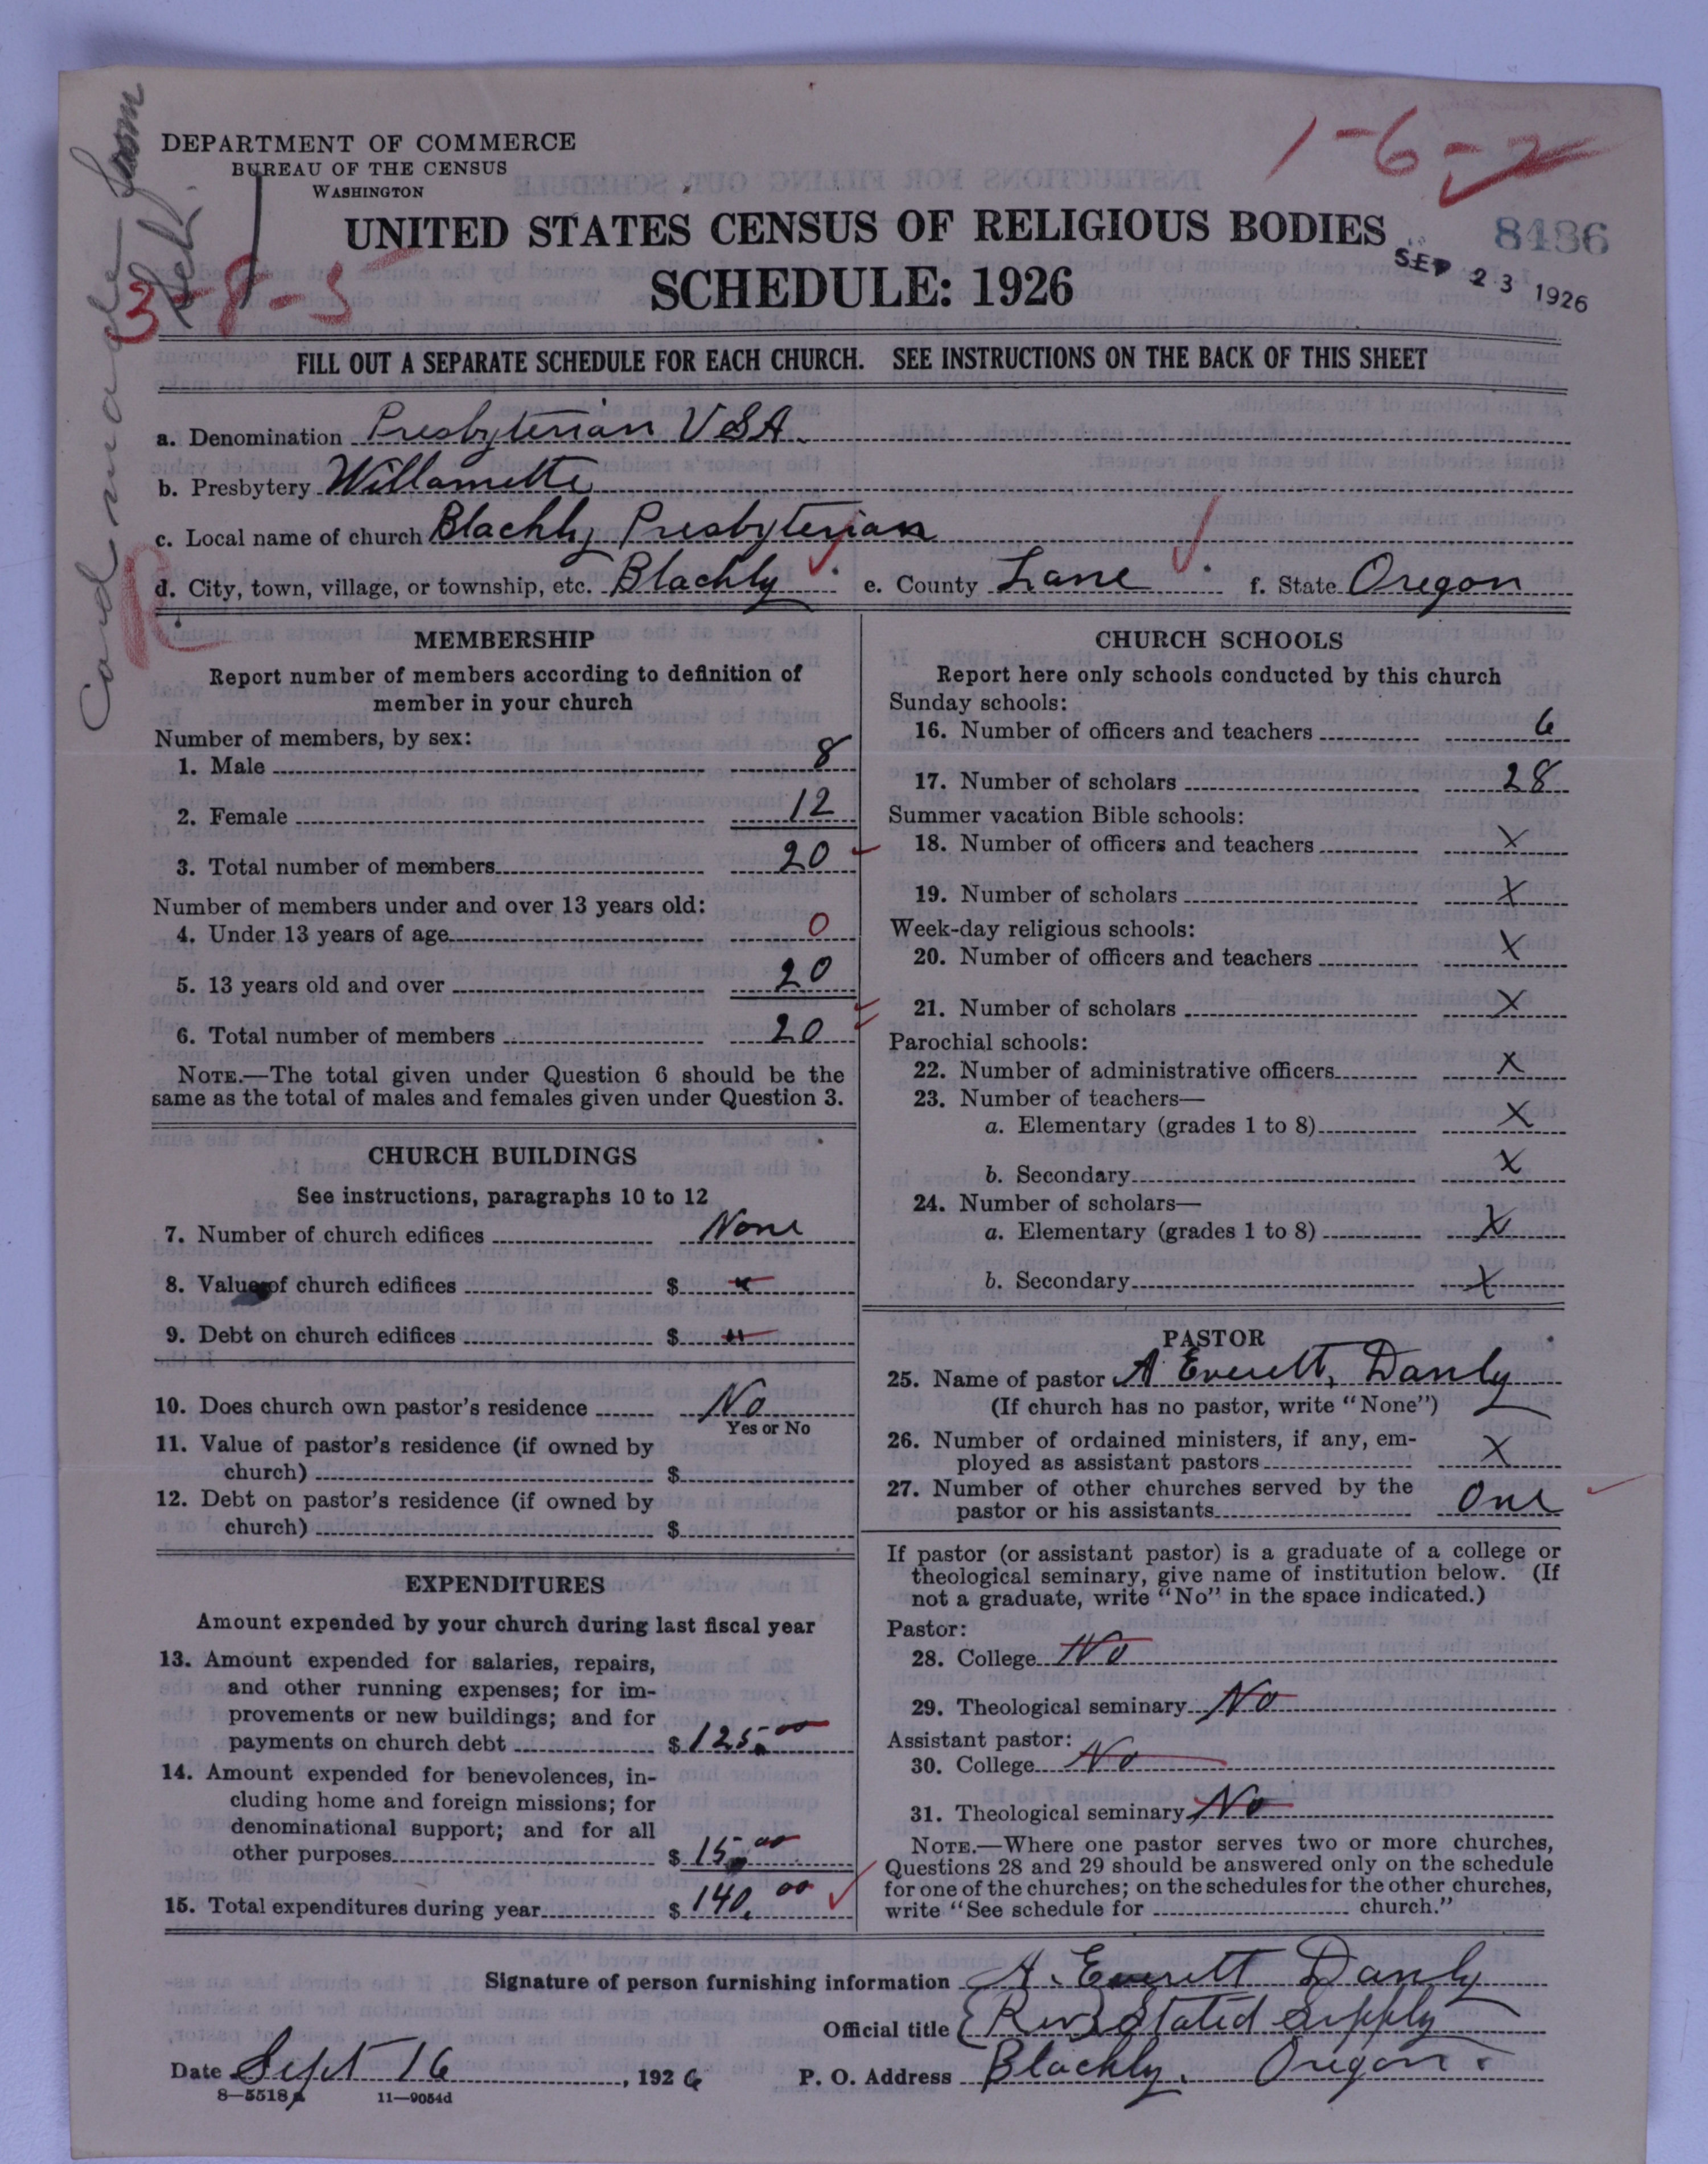 DEPARTMENT OF COMMERCE
BUREAU OF THE CENSUS
WASHINGTON
1-6-2
UNITED STATES CENSUS OF RELIGIOUS BODIES
8486
SCHEDULE: 1926
SEP 23 1926
3-8-5
Card made
FILL OUT A SEPARATE SCHEDULE FOR EACH CHURCH. SEE INSTRUCTIONS ON THE BACK OF THIS SHEET
a. Denomination Presbyterian USA.
b. Presbytery Willamette
c. Local name of church Blachly Presbyterian
d. City, town, village, or township, etc. Blachly e. County Lane f. State Oregon
R
MEMBERSHIP
Report number of members according to definition of
member in your church
Number of members, by sex:
1. Male 8
2. Female 12
3. Total number of members 20
Number of members under and over 13 years old:
4. Under 13 years of age 0
5. 13 years old and over 20
6. Total number of members 20
NOTE.—The total given under Question 6 should be the
same as the total of males and females given under Question 3.
CHURCH BUILDINGS
See instructions, paragraphs 10 to 12
7. Number of church edifices None
8. Value of church edifices $ "
9. Debt on church edifices $ "
10. Does church own pastor's residence No
Yes or No
11. Value of pastor's residence (if owned by
church) $
12. Debt on pastor's residence (if owned by
church) $
EXPENDITURES
Amount expended by your church during last fiscal year
13. Amount expended for salaries, repairs,
and other running expenses; for im-
provements or new buildings; and for
payments on church debt $ 125.00
14. Amount expended for benevolences, in-
cluding home and foreign missions; for
denominational support; and for all
other purposes $ 15.00
15. Total expenditures during year $ 140.00
CHURCH SCHOOLS
Report here only schools conducted by this church
Sunday schools:
16. Number of officers and teachers 6
17. Number of scholars 28
Summer vacation Bible schools:
18. Number of officers and teachers X
19. Number of scholars X
Week-day religious schools:
20. Number of officers and teachers X
21. Number of scholars X
Parochial schools:
22. Number of administrative officers X
23. Number of teachers—
a. Elementary (grades 1 to 8) X
b. Secondary X
24. Number of scholars—
a. Elementary (grades 1 to 8) X
b. Secondary X
PASTOR
25. Name of pastor A. Everett Danly
(If church has no pastor, write "None")
26. Number of ordained ministers, if any, em-
ployed as assistant pastors X
27. Number of other churches served by the
pastor or his assistants One
If pastor (or assistant pastor) is a graduate of a college or
theological seminary, give name of institution below. (If
not a graduate, write "No" in the space indicated.)
Pastor:
28. College No
29. Theological seminary No
Assistant pastor:
30. College No
31. Theological seminary No
NOTE.—Where one pastor serves two or more churches,
Questions 28 and 29 should be answered only on the schedule
for one of the churches; on the schedules for the other churches,
write "See schedule for church."
Signature of person furnishing information A. Everett Danly
Official title (Rev) Stated Supply
Date Sept 16, 1926 P. O. Address Blachly, Oregon.
8—5518a 11—9054d